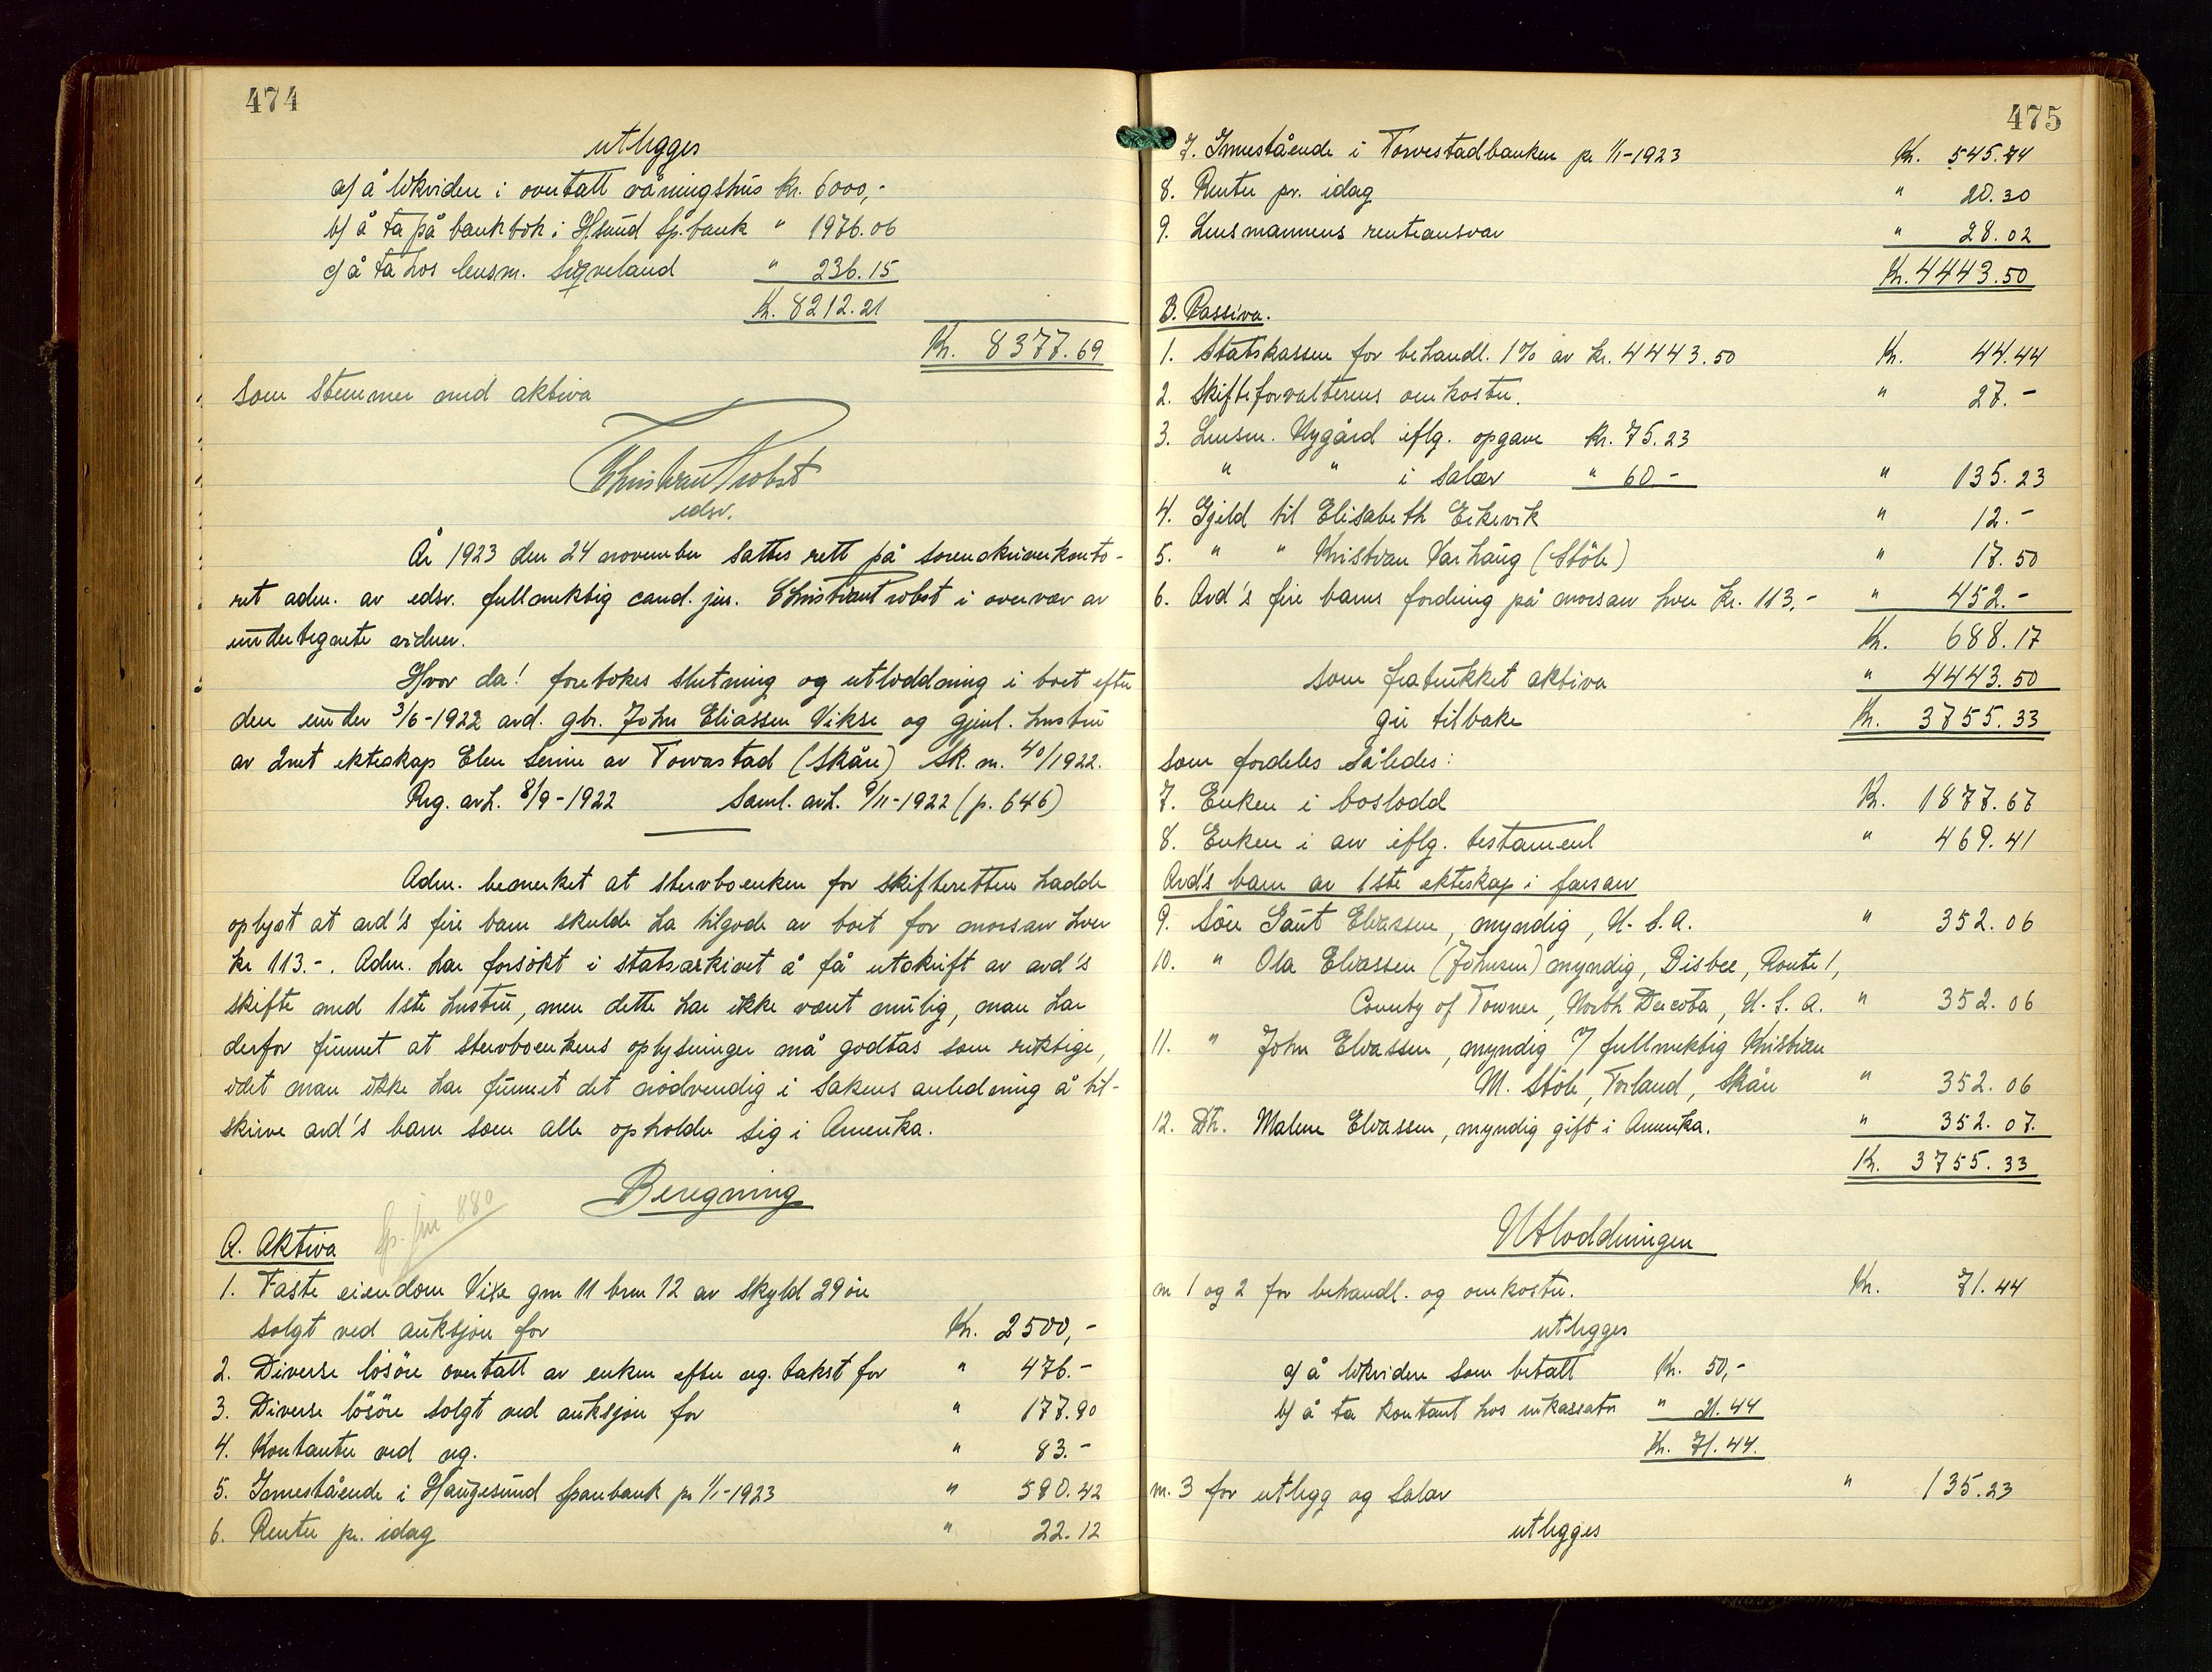 474
utlegges
a) å likvidere i overtatt våningshus kr. 6000,-
b) å ta på bankbok i H.sund sp.bank " 1976.06
c) å ta hos lensm. Sigveland " 236.15
Kr. 8212.21
Kr. 8377.69
som stemmer med aktiva
Christian Probst
edsv.
År 1923 den 24 november sattes rett på sorenskriverkonto-
ret adm. av edsv. fullmektig cand. jur. Christian Probst i overvær av
undertegnete vidner.
Hvor da! foretokes slutning og utloddning i boet efter
den under 3/6-1922 avd. gbr. John Eliassen Vikse og gjenl. hustru
av 2net ekteskap Elen Serine av Torvastad (Skåre) Sk. nr. 40/1922.
Reg. avh. 8/9-1922 Saml. avh. 9/11-1922 (p. 646)
Adm. bemerket at stervboenken for skifteretten hadde
oplyst at avd's fire barn skulde ha tilgode av boet for morsarv hver
kr 113.-. Adm. har forsökt i statsarkivet å få utskrift av avd's
skifte med 1ste hustru, men dette har ikke vært mulig, man har
derfor funnet at stervboenkens oplysninger må godtas som riktige,
idet man ikke har funnet det nödvendig i sakens anledning å til-
skrive avd's barn som alle opholder sig i Amerika.
Beregning
Sp. jnr 880
A. Aktiva
1. Faste eiendom Vikse gnr 11 brnr 12 av skyld 29 öre
solgt ved auksjon for Kr. 2500,-
2. Diverse lösöre overtatt av enken efter reg. takst for " 476.-
3. Diverse lösöre solgt ved auksjon for " 177.90
4. Kontanter ved reg. " 83.-
5. Innestående i Haugesund Sparebank pr 1/1-1923 " 590.42
6. Renter pr. idag " 22.12
475
7. Innestående i Torvestadbanken pr 1/1-1923 Kr. 545.74
8. Renter pr. idag " 20.30
9. Lensmannens renteansvar " 28.02
Kr. 4443.50
B. Passiva.
1. Statskassen for behandl. 1% av kr. 4443.50 Kr. 44.44
2. Skifteforvalterens omkostn. " 27.-
3. Lensm. Nygård iflg. opgave Kr. 75.23
" " i salær " 60.- " 135.23
4. Gjeld til Elisabeth Eikevik " 12.-
5. " " Kristian Varhaug (Stöle) " 17.50
6. Avd's fire barns fordring på morsarv hver kr. 113,- " 452.-
Kr. 688.17
som fratrukket aktiva " 4443.50
gir tilbake Kr. 3755.33
som fordeles således:
7. Enken i boslodd Kr. 1877.67
8. Enken i arv iflg. testament " 469.41
Avd's barn av 1ste ekteskap i farsarv
9. Sön Gaut Eliassen, myndig, U.S.A. " 352.06
10. " Ola Eliassen (Johnsen) myndig, Bisbee, Route 1,
County of Towner, North Dacota, U.S.A. " 352.06
11. " John Eliassen, myndig v/ fullmektig Kristian
M. Stöle,Förland, Skåre " 352.06
12. Dtr. Malene Eliassen, myndig gift i Amerika. " 352.07.
Kr. 3755.33
Utloddningen
nr 1 og 2 for behandl. og omkostn. Kr. 71.44
utlegges
a) å likvidere som betalt Kr. 50,-
b) å ta kontant hos inkassator " 21.44
Kr. 71.44.
nr. 3 for utlegg og salær " 135.23
utlegges